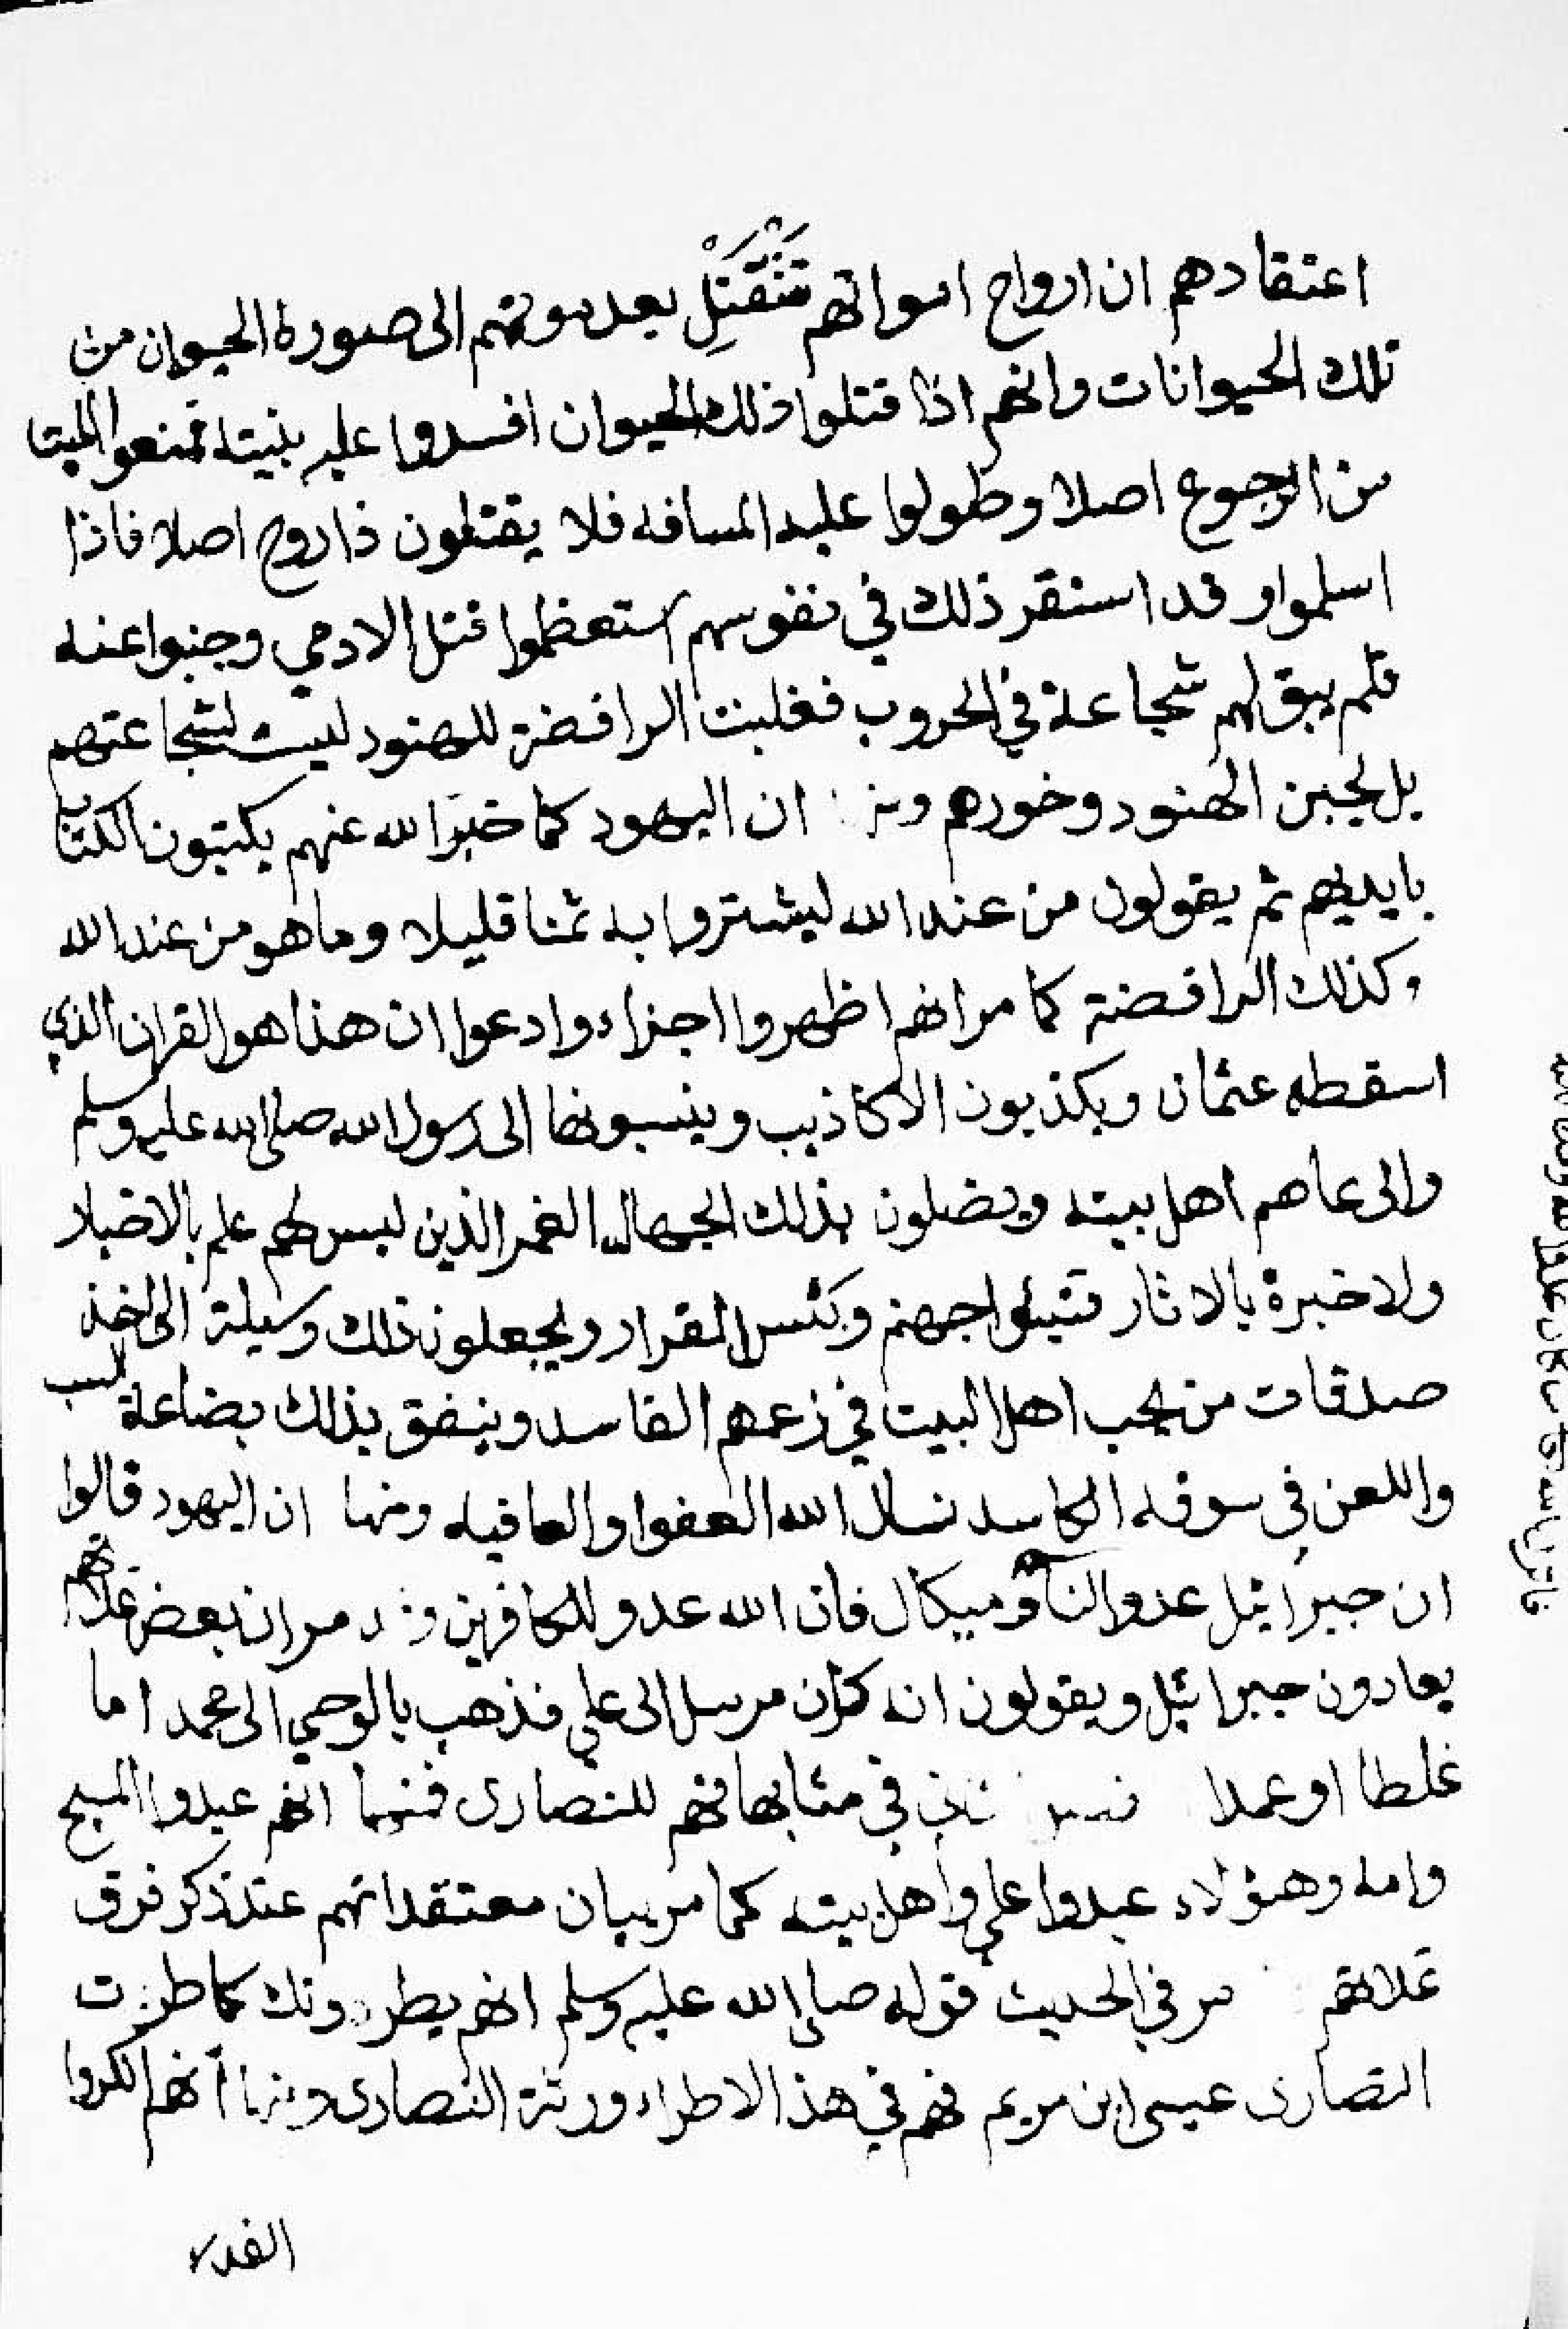 اعتقادهم ان ارواح امواتهم تنتقل بعد موتهم الى صورة الحيوان من
تلك الحيوانات وانهم اذا قتلوا ذلك الحيوان افسدوا عليه بنيته فمنعوا الميت
من الرجوع اصلا وطولوا عليه المسافه فلا يقتلون ذا روح اصلا فاذا
اسلموا وقد استقر ذلك في نفوسهم استعظموا قتل الادمي وجبنوا عنه
فلم يبق لهم شجاعة في الحروب فغلبت الرافضة للهنود ليست لشجاعتهم
بل لجبن الهنود وخورهم ان اليهود كما خبر الله عنهم يكتبون الكتاب
بايديهم ثم يقولون من عند الله ليشتروا به ثمنا قليلا وما هو من عند الله
وكذلك الرافضة كما مر انهم اظهروا اجزاء وادعوا ان هذا هو القران الذي
اسقطه عثمان ويكذبون الاكاذيب وينسبونها الى رسول الله صلى الله عليه وسلم
والى اهل بيته ويضلون بذلك الجهال الغمر الذين ليس لهم علم بالاخبار
ولا خبرة بالاثار وبئس القرار ويجعلون ذلك وسيلة الى اخذ
صدقات من يحب اهل البيت في زعمهم الفاسد وينفق بذلك بضاعة السب
واللعن في سوقه الكاسد نسال الله العفو والعافيه ومنها ان اليهود قالوا
ان جبرائيل عدو لنا وميكال فان الله عدو للكافرين مر ان بعض غلاتهم
يعادون جبرائيل ويقولون انه كان مرسل الى علي فذهب بالوحي الى محمد اما
غلطا او عمدا في مشابهاتهم للنصارى فمنها انهم عبدوا المسيح
وامه وهؤلاء عبدوا علي واهل بيته كما مر بيان معتقداتهم عند ذكر فرق
غلاتهم مر في الحديث قوله صلى الله عليه وسلم انهم يطرونك كما طرت
النصارى عيسى ابن مريم فهم في هذا الاطراء ورثة النصارى ومنها انهم انكروا